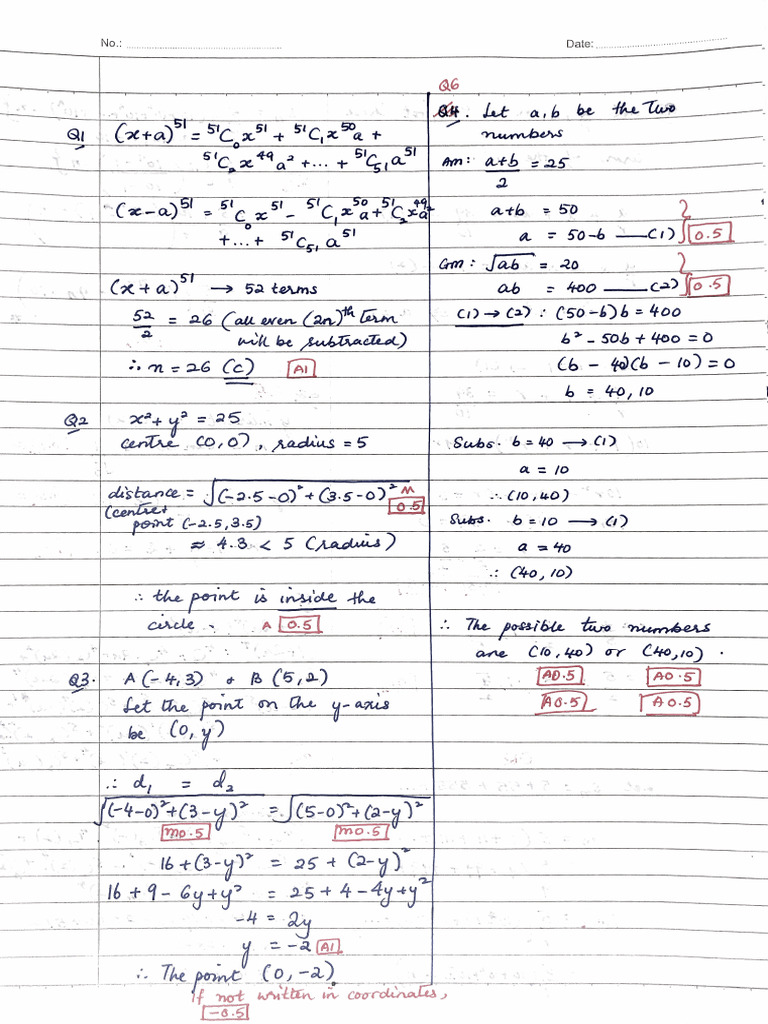 No.:
Date:
Q1 (x+a)^51 = ^51C_0 x^51 + ^51C_1 x^50 a +
^51C_2 x^49 a^2 + ... + ^51C_51 a^51
(x-a)^51 = ^51C_0 x^51 - ^51C_1 x^50 a + ^51C_2 x^49 a^2
+ ... + ^51C_51 a^51
(x+a)^51 → 52 terms
52/2 = 26 (all even (2n)^th term
will be subtracted)
∴ n = 26 (c) A1
Q2 x² + y² = 25
centre (0,0), radius = 5
distance = √(-2.5-0)² + (3.5-0)² M
0.5
(centre &
point (-2.5, 3.5)
≈ 4.3 < 5 (radius)
∴ the point is inside the
circle. A 0.5
Q3. A(-4,3) & B(5,2)
Let the point on the y-axis
be (0,y)
∴ d₁ = d₂
√(-4-0)² + (3-y)² = √(5-0)² + (2-y)²
M0.5 M0.5
16 + (3-y)² = 25 + (2-y)²
16 + 9 - 6y + y² = 25 + 4 - 4y + y²
-4 = 2y
y = -2 A1
∴ The point (0,-2).
If not written in coordinates,
-0.5
Q6
Q4. Let a,b be the two
numbers
Am: a+b/2 = 25
a+b = 50
a = 50-b —(1) 0.5
Gm: √ab = 20
ab = 400 —(2) 0.5
(1) → (2) : (50-b)b = 400
b² - 50b + 400 = 0
(b - 40)(b - 10) = 0
b = 40, 10
Subs. b = 40 → (1)
a = 10
∴ (10,40)
Subs. b = 10 → (1)
a = 40
∴ (40,10)
∴ The possible two numbers
are (10,40) or (40,10).
A0.5 A0.5
A0.5 A0.5